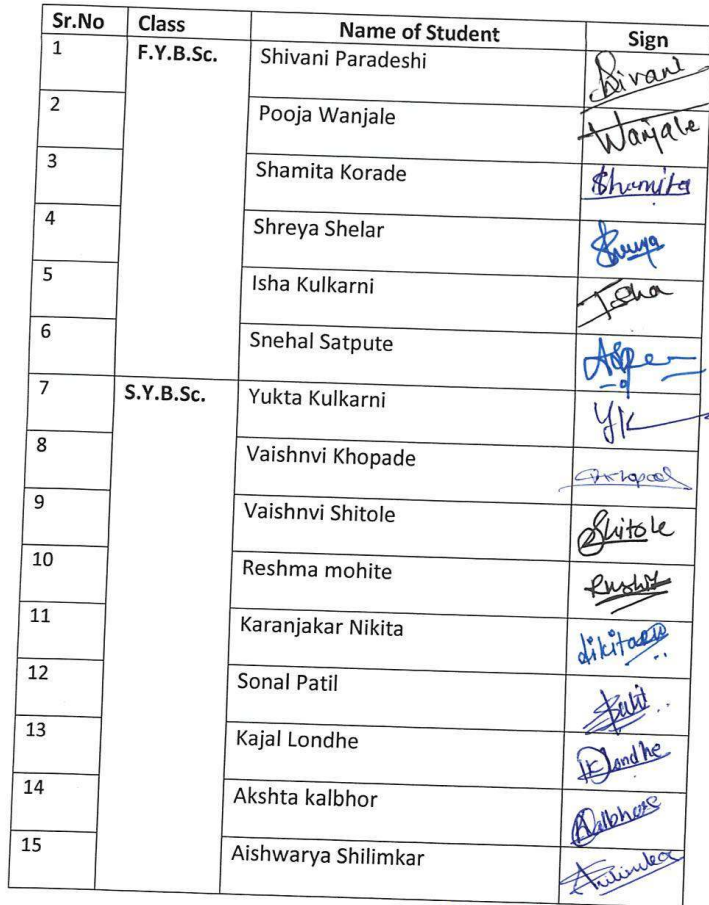 Sr.No Class Name of Student Sign
1 F.Y.B.Sc. Shivani Paradeshi Shivani
2 Pooja Wanjale Wanjale
3 Shamita Korade Shamita
4 Shreya Shelar Shreya
5 Isha Kulkarni Isha
6 Snehal Satpute
7 S.Y.B.Sc. Yukta Kulkarni YK
8 Vaishnvi Khopade
9 Vaishnvi Shitole Shitole
10 Reshma mohite
11 Karanjakar Nikita
12 Sonal Patil
13 Kajal Londhe KLondhe
14 Akshta kalbhor
15 Aishwarya Shilimkar